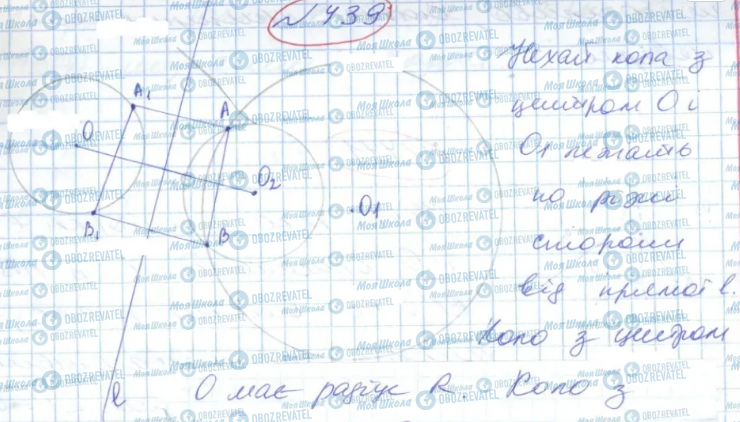 №439
Нехай кола з
центром O і
O1 лежать
по різні
сторони
від прямої l.
Коло з центром
O має радіус R. Коло з
A1
A
O
O2
O1
B1
B
l
Моя Школа
OBOZREVATEL